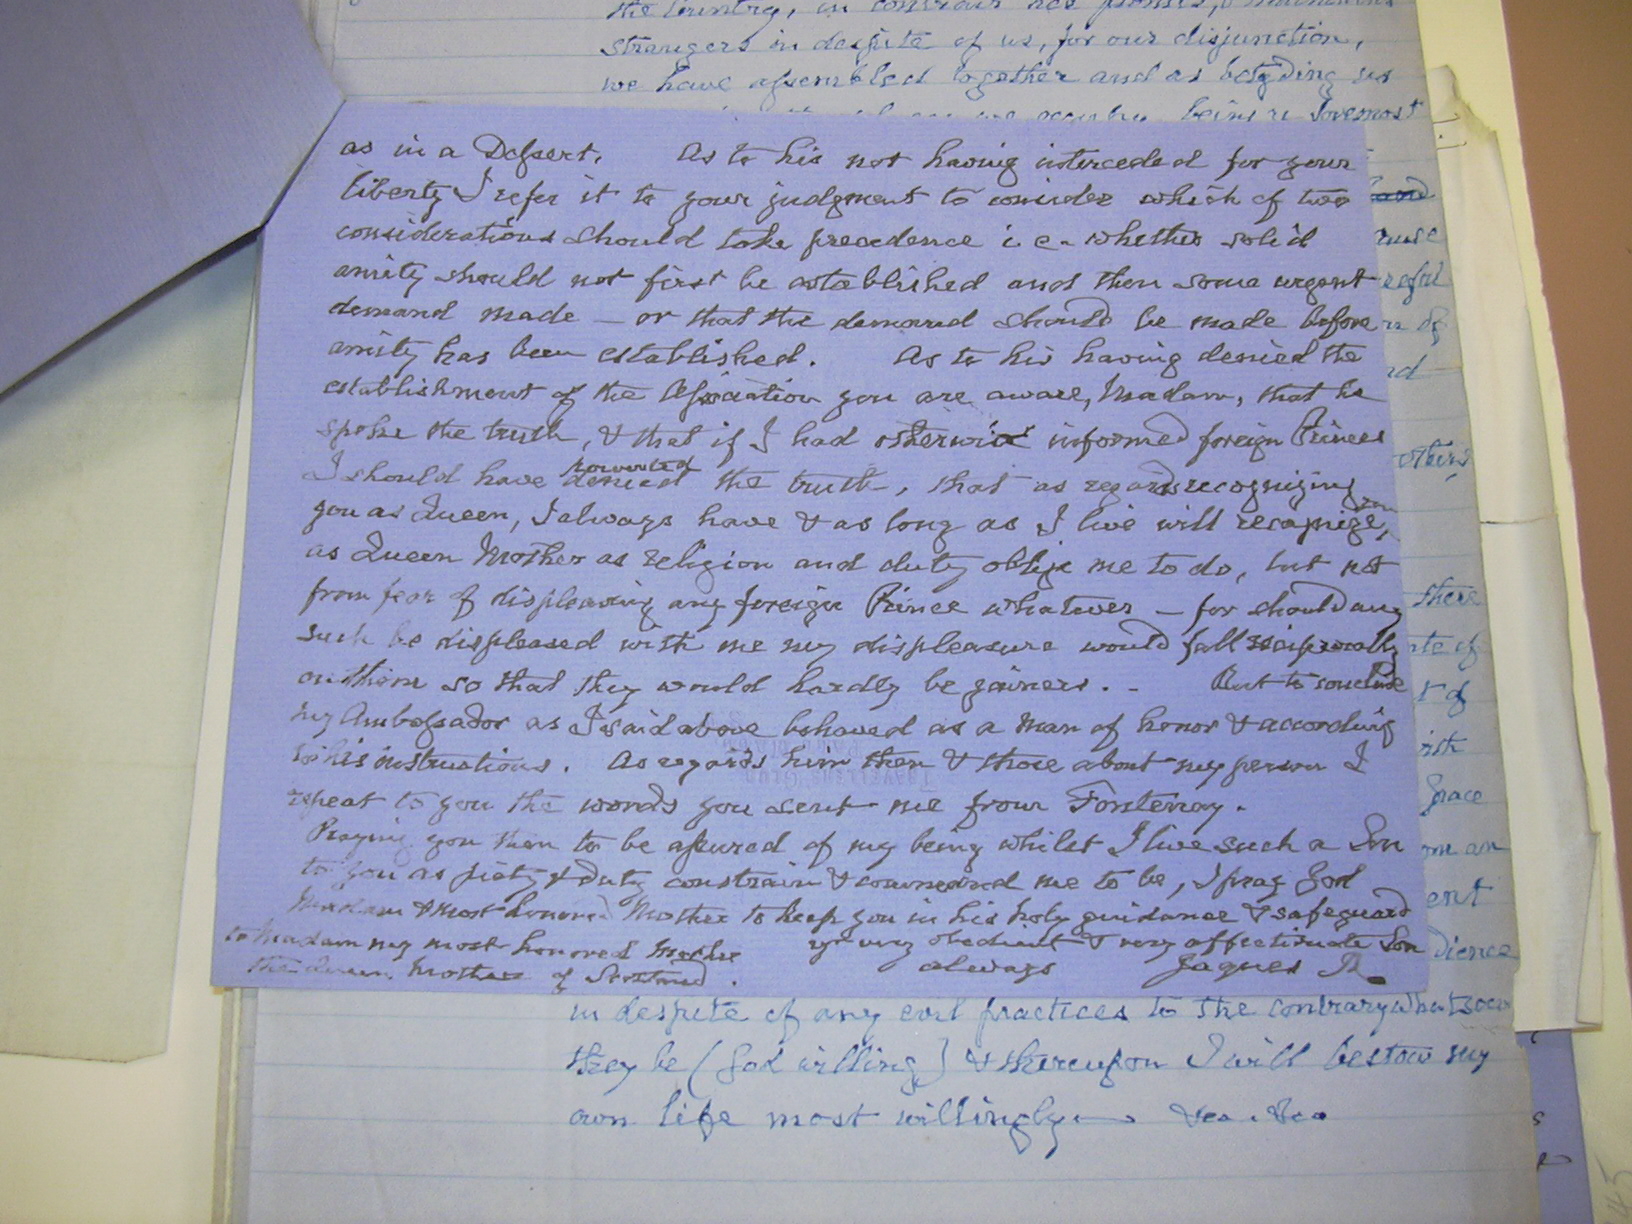 the Country, in
strangers in despite of us, for our disjunction,
we have assembled together and as us
being foremost
as in a Dessert. As to his not having interceded for your
liberty I refer it to your judgment to consider which of two
considerations should take precedence i.e. whether solid
amity should not first be established and then some urgent
demand made — or that the demand should be made before
amity has been established. As to his having denied the
establishment of the Association you are aware, Madam, that he
spoke the truth, & that if I had otherwise informed foreign Princes
I should have denied the truth, that as regards recognizing
you as Queen, I always have & as long as I live will recognize, you
as Queen Mother as religion and duty oblige me to do, but not
from fear of displeasing any foreign Prince whatever — for should any
such be displeased with me my displeasure would fall reciprocally
on them so that they would hardly be gainers. - But to conclude
my Ambassador as I said above behaved as a man of honor & according
to his instructions. As regards him then & those about my person I
repeat to you the words you sent me from Fontenay.
Praying you then to be assured of my being whilst I live such a Son
to you as piety & duty constrain & command me to be, I pray God
Madam & most honored Mother to keep you in his holy guidance & safeguard
yr very obedient & very affectionate Son
always Jaques R
to Madam my most honored Mother
the Queen Mother of Scotland.
others
there
of
Grace
dience
in despite of any evil practices to the contrary whatsoever
they be (God willing) & thereupon I will bestow my
own life most willingly — &ca. &ca
TRAVELLERS CLUB
PALL MALL